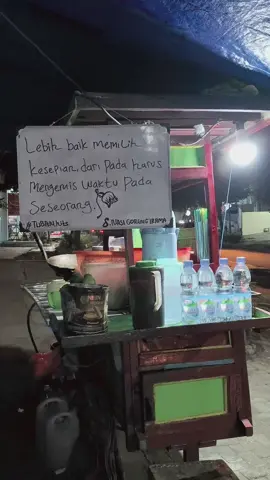 Lebih baik memilih
kesepian, dari pada harus
Mengemis waktu pada
Seseorang.
#TUBAN_KIS
NASI GORENG IRAMA